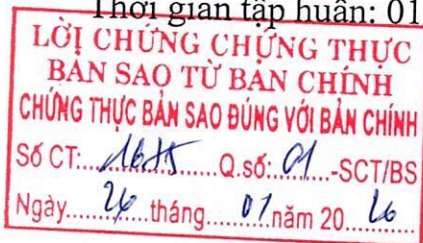 Thời gian tập huấn: 01
LỜI CHỨNG CHỨNG THỰC
BẢN SAO TỪ BẢN CHÍNH
CHỨNG THỰC BẢN SAO ĐÚNG VỚI BẢN CHÍNH
Số CT:.............Q.số: 01 -SCT/BS
Ngày.... 26 tháng.... 01 năm 20... 26